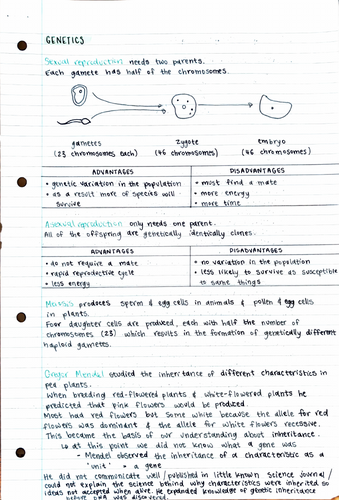 GENETICS
Sexual reproduction needs two parents.
Each gamete has half of the chromosomes.
gametes zygote embryo
(23 chromosomes each) (46 chromosomes) (46 chromosomes)
ADVANTAGES DISADVANTAGES
• genetic variation in the population • must find a mate
• as a result more of species will • more energy
survive • more time
Asexual reproduction only needs one parent.
All of the offspring are genetically identically clones.
ADVANTAGES DISADVANTAGES
• do not require a mate • no variation in the population
• rapid reproductive cycle • less likely to survive as susceptible
• less energy to same things
Meiosis produces sperm & egg cells in animals & pollen & egg cells
in plants.
Four daughter cells are produced, each with half the number of
chromosomes (23) which results in the formation of genetically different
haploid gametes.
Gregor Mendel studied the inheritance of different characteristics in
pea plants.
When breeding red-flowered plants & white-flowered plants he
predicted that pink flowers would be produced.
Most had red flowers but some white because the allele for red
flowers was dominant & the allele for white flowers recessive.
This became the basis of our understanding about inheritance.
↳ at this point we did not know what a gene was
- Mendel observed the inheritance of a characteristic as a
'unit' = a gene
He did not communicate well / published in little known science journal /
could not explain the science behind why characteristics were inherited so
ideas not accepted when alive. He expanded knowledge of genetic inheritance
before DNA was discovered.